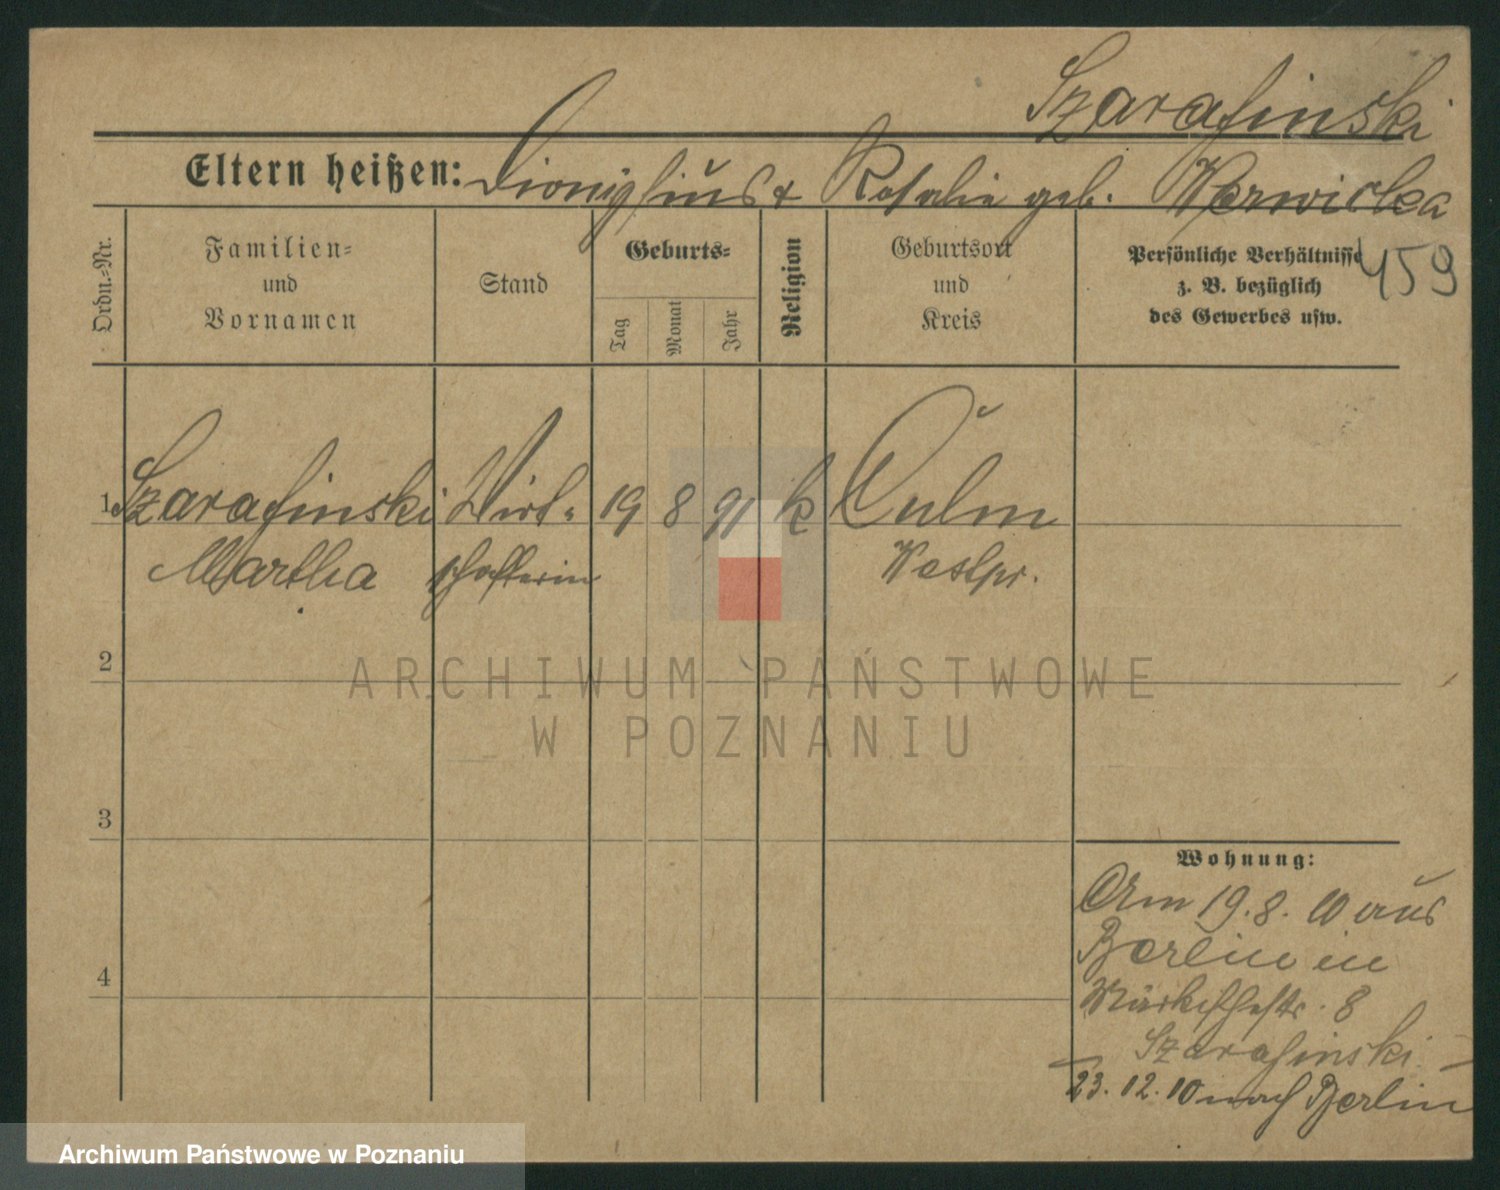 Szarafinski
Eltern heißen: Dionysius & Rosalie geb. Werwicka
459
Ordn.-Nr.
Familien-
und
Vornamen
Stand
Geburts-
Tag
Monat
Jahr
Religion
Geburtsort
und
Kreis
Persönliche Verhältnisse
z. B. bezüglich
des Gewerbes usw.
1 Szarafinski Wirt- 19 8 91 k Culm
Martha schafterin Westpr.
2
3
4
Wohnung:
Am 19.8.10 aus
Berlin in
Märkischestr. 8
Szarafinski
23.12.10 nach Berlin
ARCHIWUM PAŃSTWOWE
W POZNANIU
Archiwum Państwowe w Poznaniu